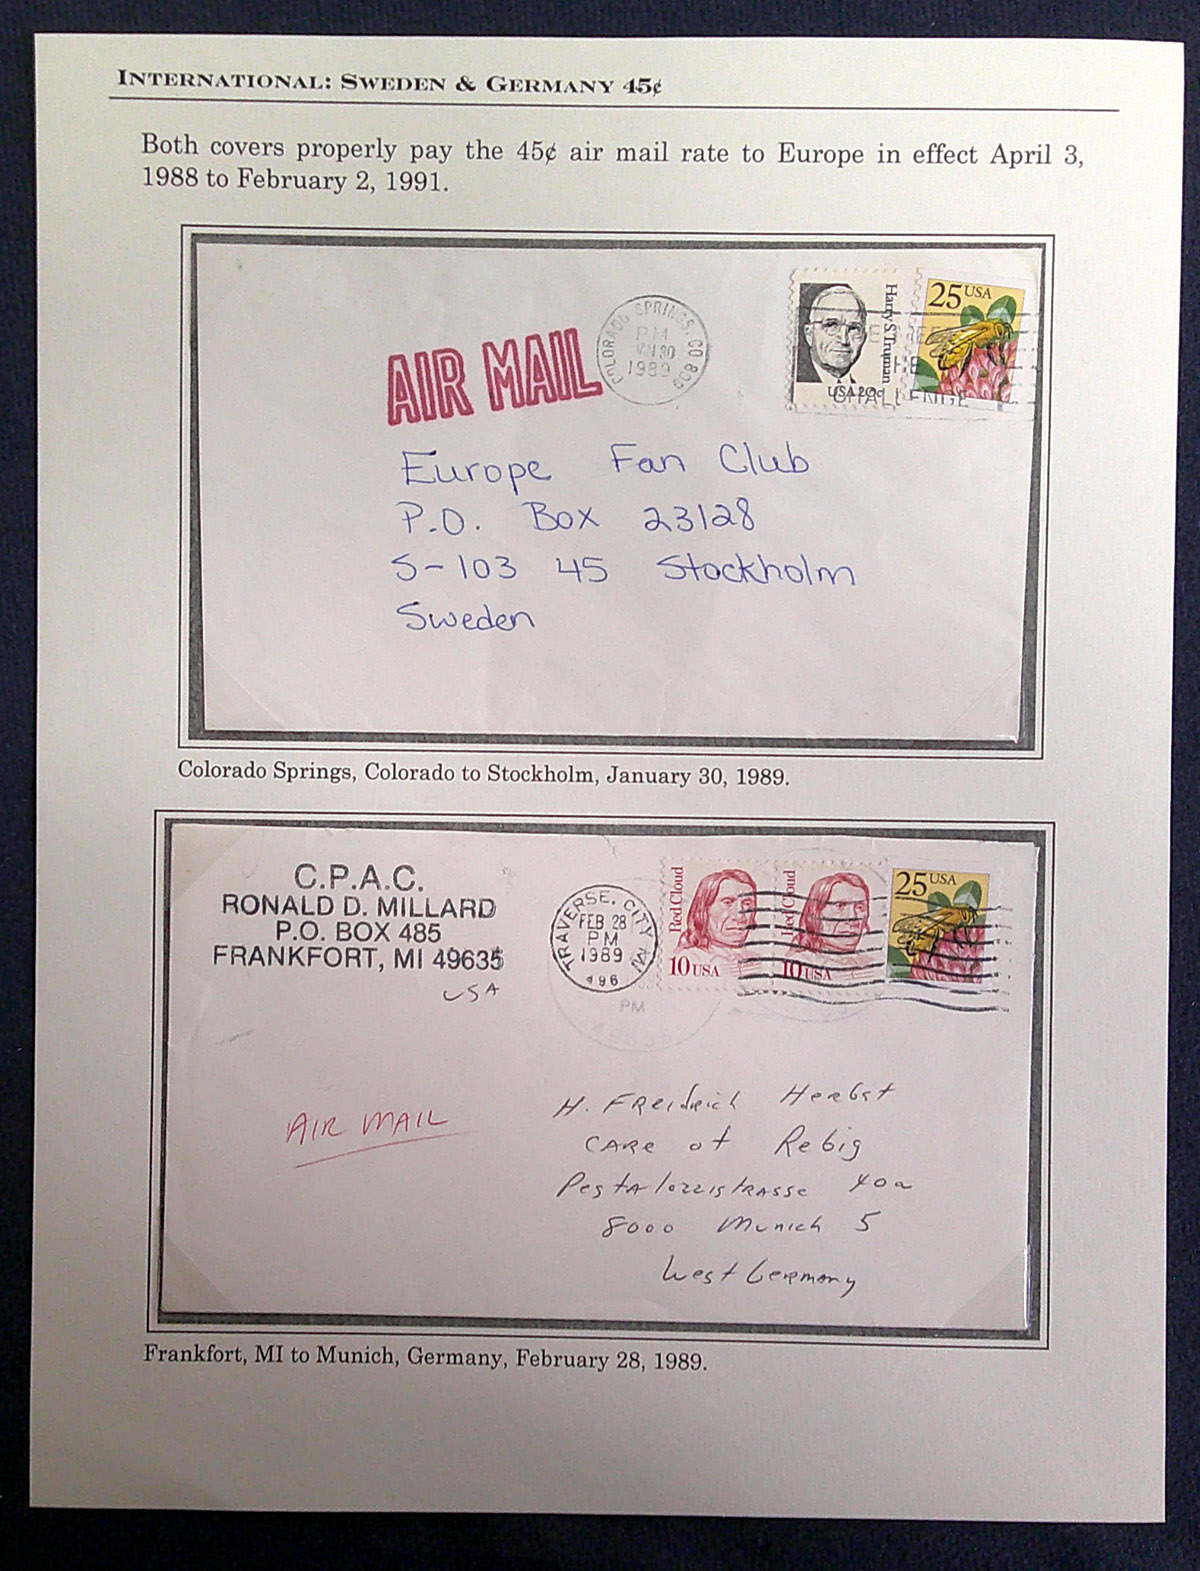 INTERNATIONAL: SWEDEN & GERMANY 45¢
Both covers properly pay the 45¢ air mail rate to Europe in effect April 3,
1988 to February 2, 1991.
COLORADO SPRINGS, CO 809
PM
30
1989
Harry S. Truman
USA 20c
25 USA
CHALLENGE
AIR MAIL
Europe Fan Club
P.O. Box 23128
S-103 45 Stockholm
Sweden
Colorado Springs, Colorado to Stockholm, January 30, 1989.
C.P.A.C.
RONALD D. MILLARD
P.O. BOX 485
FRANKFORT, MI 49635
USA
TRAVERSE CITY MI
FEB 28
PM
1989
496
PM
Red Cloud
10 USA
Red Cloud
10 USA
25 USA
AIR MAIL
H. FReidrich Herbst
CARe of Rebig
PestAlozzistRAsse 40a
8000 Munich 5
West Germany
Frankfort, MI to Munich, Germany, February 28, 1989.